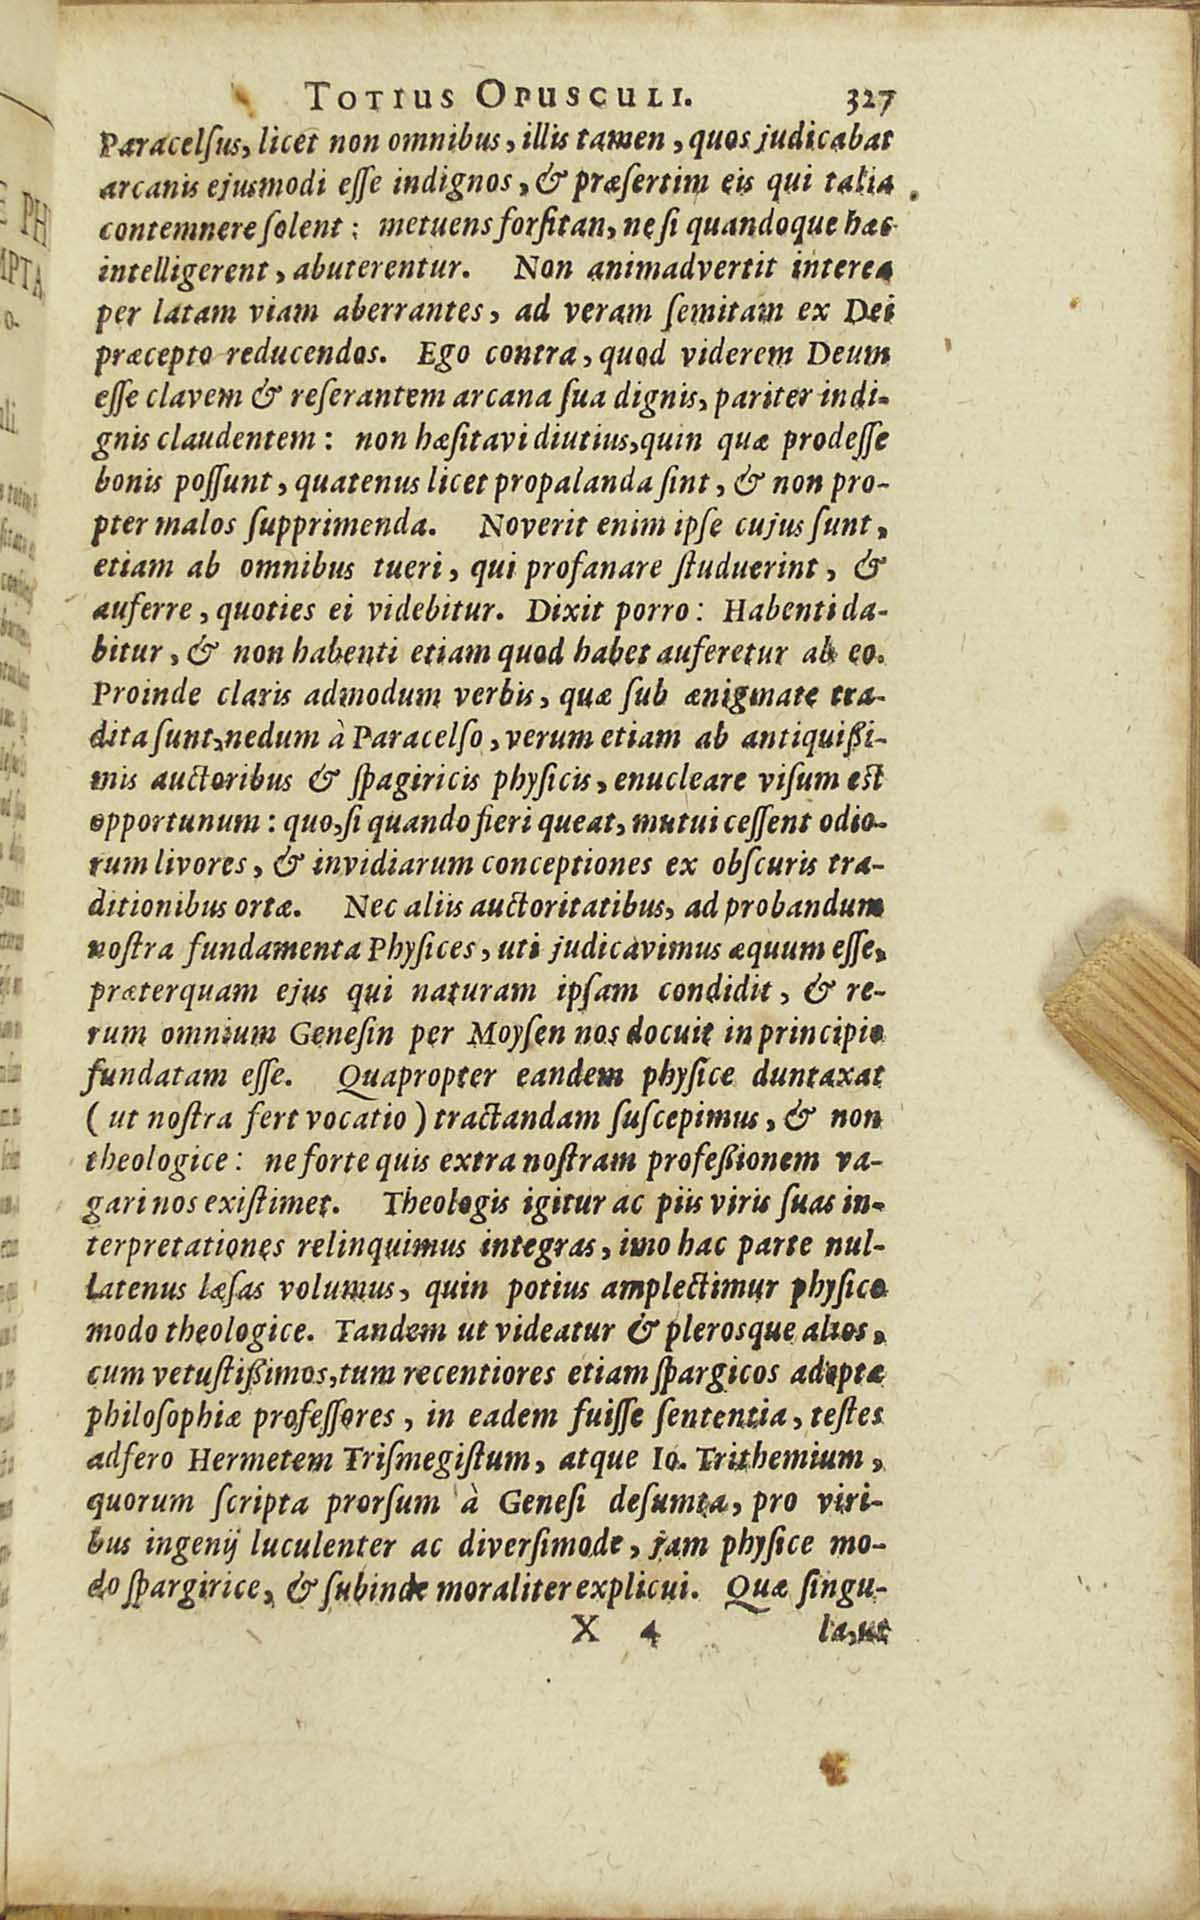 TOTIUS OPUSCULI. 327
Paracelſus, licet non omnibus, illis tamen, quos judicabat
arcanis ejusmodi eſſe indignos, & præſertim eis qui talia
contemnere ſolent: metuens forſitan, ne ſi quandoque hæc
intelligerent, abuterentur. Non animadvertit interea
per latam viam aberrantes, ad veram ſemitam ex Dei
præcepto reducendos. Ego contra, quod viderem Deum
eſſe clavem & reſerantem arcana ſua dignis, pariter indi-
gnis claudentem: non hæſitavi diutius, quin quæ prodeſſe
bonis poſſunt, quatenus licet propalanda ſint, & non pro-
pter malos ſupprimenda. Noverit enim ipſe cujus ſunt,
etiam ab omnibus tueri, qui profanare ſtuduerint, &
auferre, quoties ei videbitur. Dixit porro: Habenti da-
bitur, & non habenti etiam quod habet auferetur ab eo.
Proinde claris admodum verbis, quæ ſub ænigmate tra-
dita ſunt, nedum à Paracelſo, verum etiam ab antiquißi-
mis auctoribus & ſpagiricis phyſicis, enucleare viſum eſt
opportunum: quo, ſi quando fieri queat, mutui ceſſent odio-
rum livores, & invidiarum conceptiones ex obſcuris tra-
ditionibus ortæ. Nec aliis auctoritatibus, ad probandum
noſtra fundamenta Phyſices, uti judicavimus æquum eſſe,
præterquam ejus qui naturam ipſam condidit, & re-
rum omnium Geneſin per Moyſen nos docuit in principio
fundatam eſſe. Quapropter eandem phyſice duntaxat
( ut noſtra fert vocatio ) tractandam ſuſcepimus, & non
theologice: ne forte quis extra noſtram profeßionem va-
gari nos exiſtimet. Theologis igitur ac piis viris ſuas in-
terpretationes relinquimus integras, imo hac parte nul-
latenus læſas volumus, quin potius amplectimur phyſico
modo theologice. Tandem ut videatur & plerosque alios,
cum vetuſtißimos, tum recentiores etiam ſpargicos adeptæ
philoſophiæ profeſſores, in eadem fuiſſe ſententia, teſtes
adfero Hermetem Triſmegiſtum, atque Io. Trithemium,
quorum ſcripta prorſum à Geneſi deſumta, pro viri-
bus ingenij luculenter ac diverſimode, jam phyſice mo-
do ſpargirice, & ſubinde moraliter explicui. Quæ ſingu-
X 4 la, ut